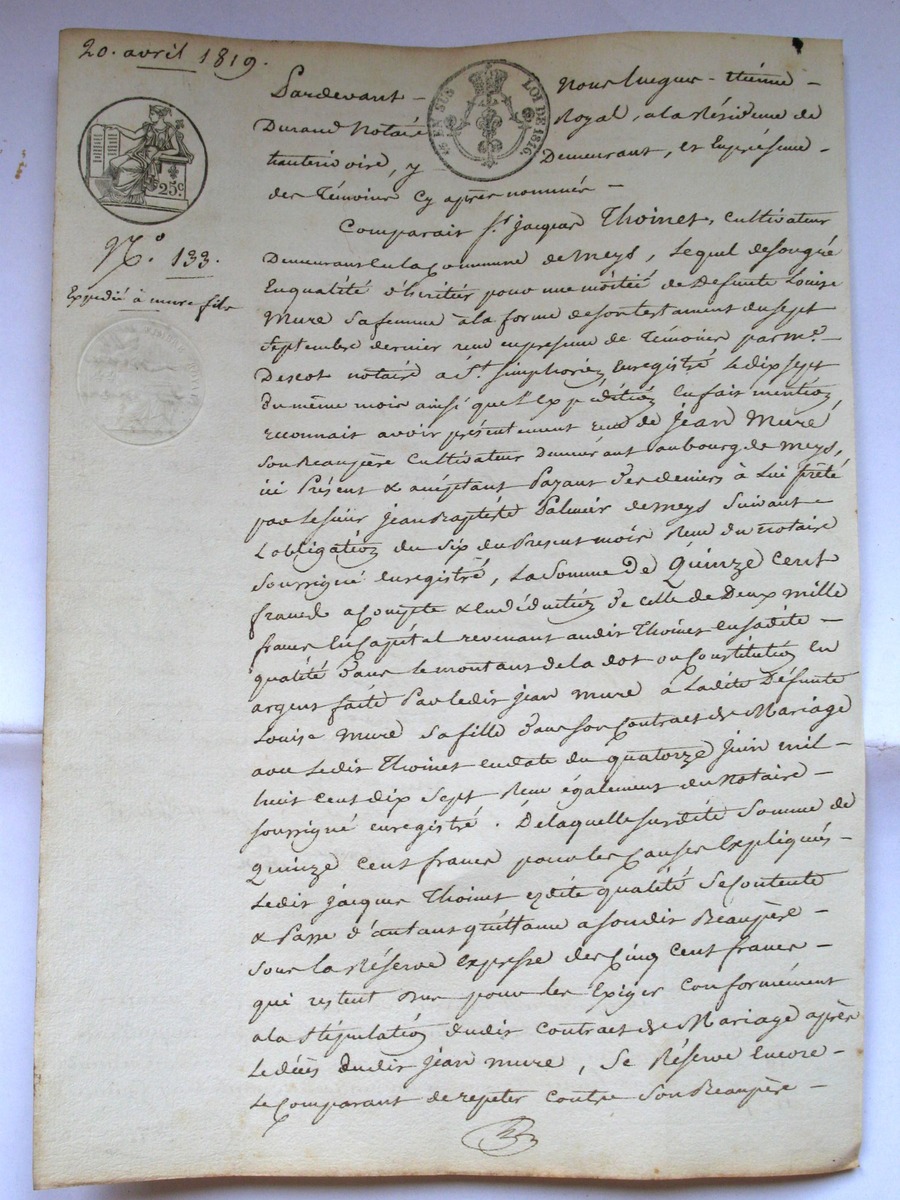 20. avril 1819.
25c.
EN SUS
LOI DE 1816
No. 133.
Expédié à mure fils
Pardevant - Nous hugues - étiénne -
Durand Notaire Royal, a la Résidence de
hauterivoire, y Demeurant, et En présence -
des Témoins Cy après nommés -
Comparait Sr. jacques Thoinet, Cultivateur
Demeurant En la Commune de Meys, Lequel de son gré
En qualité d'héritier pour une moitié de Défunte Louise
Mure Sa femme à la forme de son testament du sept
Septembre dernier reçu en présence de Témoins par Me.
Descot notaire à St. Simphorien, Enregistré Le dix Sept
du même mois ainsi que l'Expédition En fait mention,
reconnait avoir présentement reçu de Jean Mure
Son Beaupère Cultivateur Demeurant au bourg de Meys,
ici Présent & acceptant Payant des deniers à Lui prêté
par Le Sieur Jean Baptiste Palmier de meys Suivant -
L'obligation du Six du Présent mois Reçu du Notaire
Soussigné Enregistré, La Somme De Quinze Cent
francs a Compte & En déduction de celle de Deux mille
francs En Capital revenant audit Thoinet En sadite -
qualité dans le montant de la dot ou Constitution En
argent faite Par Ledit jean mure à Ladite Défunte
Louise Mure Sa fille dans son Contract de Mariage
avec Ledit Thoinet En date du quatorze Juin mil -
huit cent dix Sept Reçu également du Notaire -
soussigné enregistré. De laquelle susdite Somme de
Quinze Cent francs pour les Causes Expliqués -
Ledit jacques Thoinet esdite qualité Se Contente
& Passe d'autant quittance a Son dit Beaupère -
sous la Réserve Expresse des Cinq Cent francs -
qui restent Dus pour les Exiger Conformément
a la Stipulation dudit Contract de Mariage après
Le décès dudit Jean mure, Se Réserve Encore -
Le Comparant de repeter Contre Son Beaupère -